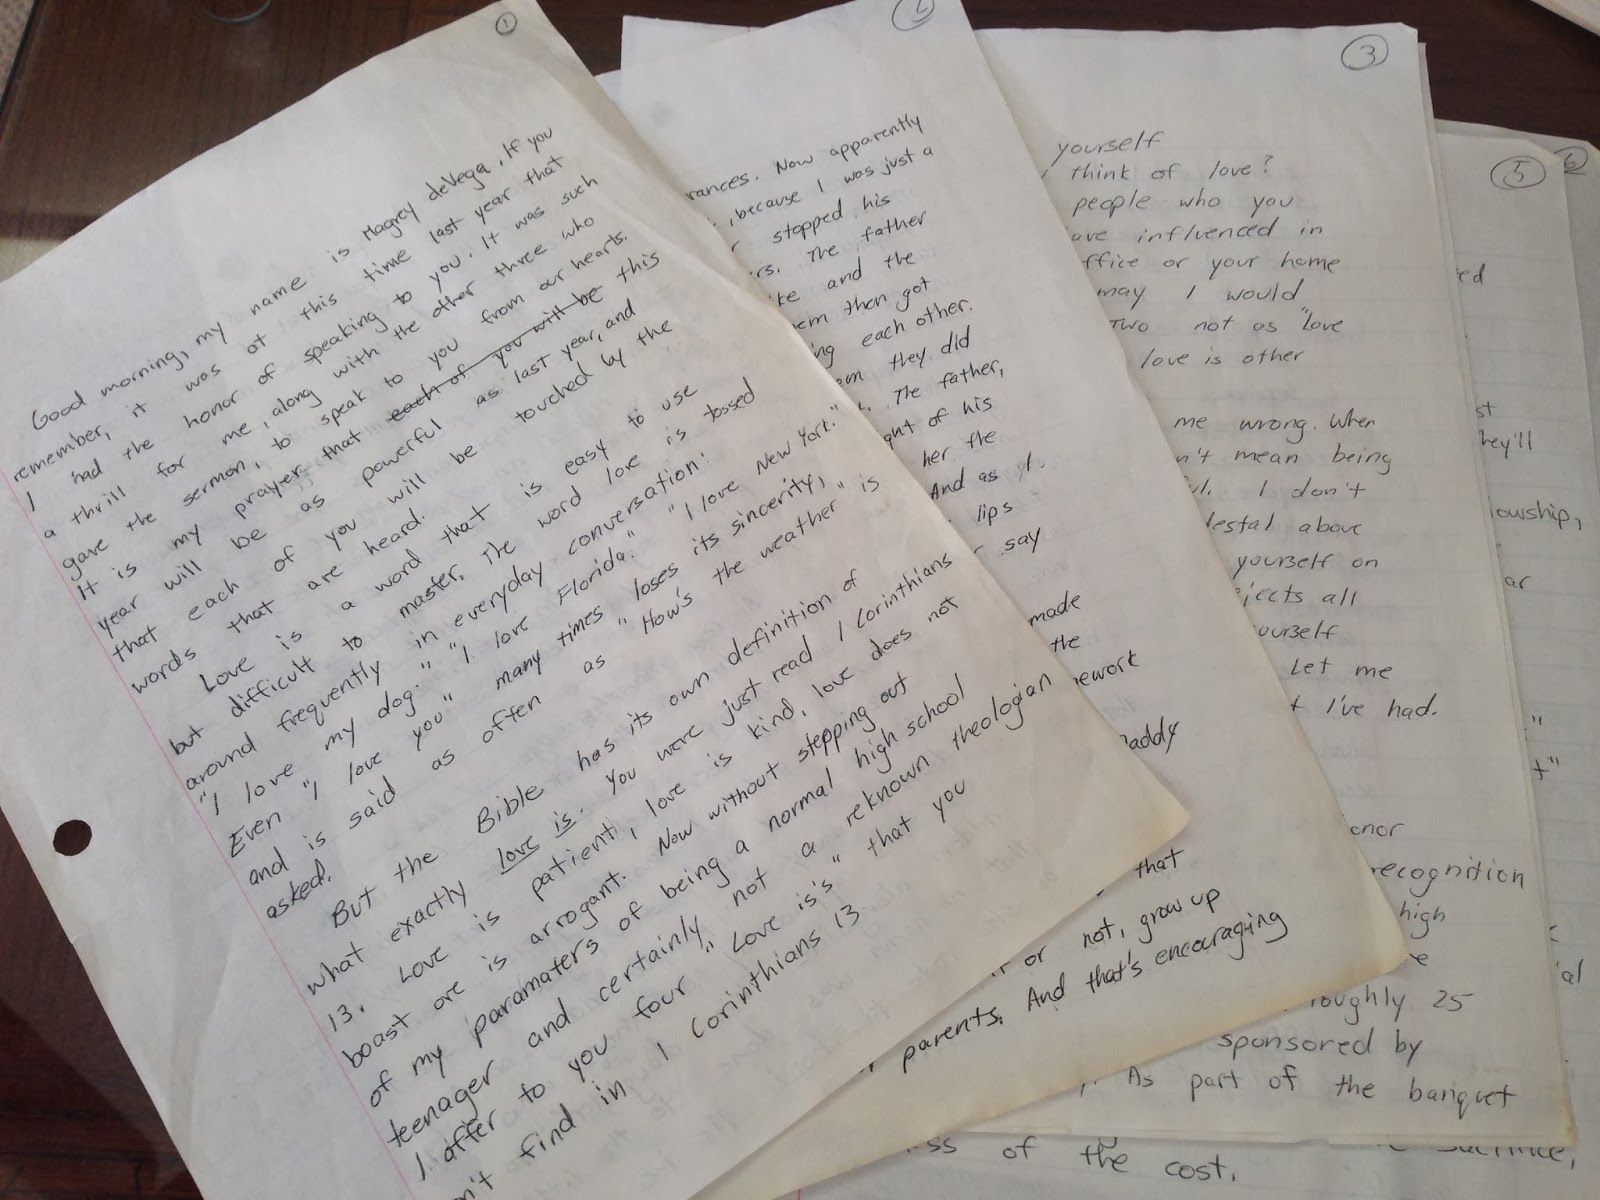 1
Good morning, my name is Magrey deVega. If you
remember, it was at this time last year that
I had the honor of speaking to you. It was such
a thrill for me, along with the other three who
gave the sermon, to speak to you from our hearts.
It is my prayer that each of you will be this
year will be as powerful as last year, and
that each of you will be touched by the
words that are heard.
Love is a word that is easy to use
but difficult to master. The word love is tossed
around frequently in everyday conversation:
"I love my dog." "I love Florida." "I love New York."
Even "I love you" many times loses its sincerity,
and is said as often as "How's the weather" is
asked.
But the Bible has its own definition of
what exactly love is. You were just read 1 Corinthians
13. Love is patient, love is kind, love does not
boast ore is arrogant. Now without stepping out
of my paramaters of being a normal high school
teenager and certainly not a reknown theologian
I offer to you four "Love is's" that you
n't find in 1 Corinthians 13.
2
rances. Now apparently
, because I was just a
stopped his
rs. The father
ke and the
em then got
ng each other.
em they did
. The father,
ght of his
her the
And as I
lips
say
made
the
mework
Daddy
that
or not, grow up
parents. And that's encouraging
3
yourself
think of love?
people who you
ave influenced in
ffice or your home
may I would
Two not as "love
love is other
me wrong. When
n't mean being
ful. I don't
destal above
yourself on
ejects all
yourself
Let me
t I've had.
onor
recognition
high
re
roughly 25
sponsored by
As part of the banquet
5
ed
st
they'll
lowship,
ar
"
t"
ial
6
ss of the cost.
sacrifice,